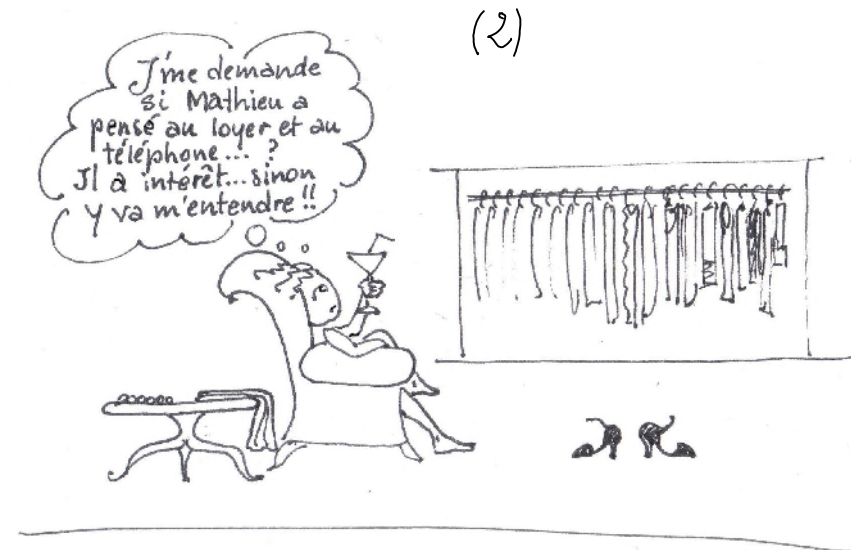 (2)
J'me demande
si Mathieu a
pensé au loyer et au
téléphone... ?
Il a intérêt...sinon
Y va m'entendre !!